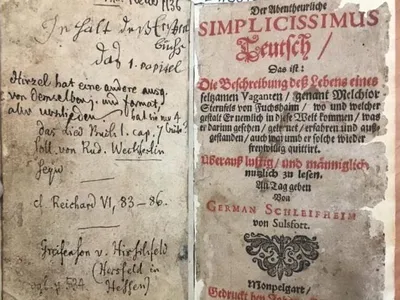 1136
Inhalt des Ersten
Buchs
das 1. capitel
Hirzel hat eine andere ausg.
von demselben j. und format,
also worinnen
hat sie nur 4
das lied Buch 1. cap. 7
soll von Rud. Weckherlin
seyn
cf Reichard VI, 83-86.
Grafeson v. Hirschfeld
(Hersfeld in
Hessen)
vgl. p 524.
Der Abentheurliche
SIMPLICISSIMUS
Teutsch /
Das ist:
Die Beschreibung deß Lebens eines
seltzamen Vaganten / genant Melchior
Sternfels von Fuchshaim / wo und welcher
gestalt Er nemlich in diese Welt kommen / was
er darinn gesehen / gelernet / erfahren und auß-
gestanden / auch warumb er solche wieder
freywillig quittirt.
Überauß lustig / und männiglich
nutzlich zu lesen.
An Tag geben
Von
GERMAN SCHLEIFHEIM
von Sulsfort.
Monpelgart /
Gedruckt bey